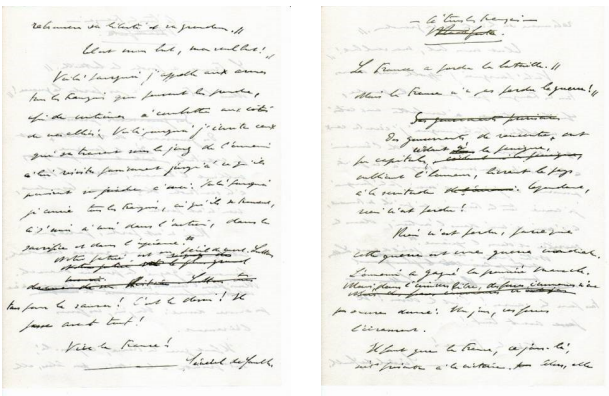 retrouver sa liberté et sa grandeur.//
C'est mon but, mon seul but!
Voilà pourquoi j'appelle aux armes
tous les Français qui peuvent les prendre,
afin de continuer à combattre aux côtés
de nos alliés! Voilà pourquoi j'invite ceux
qui se trouvent sous le joug de l'ennemi
à lui résister jusqu'à ce qu'ils
puissent Voilà pourquoi
je convie tous les Français, où qu'ils se trouvent,
à s'unir à moi dans l'action, dans le
sacrifice et dans l'espérance.
Notre patrie est en péril de mort. Luttons
tous pour la sauver! C'est le devoir! Il
passe avant tout!
Vive la France!
Général de Gaulle
- à tous les Français -
La France a perdu la bataille.//
Mais la France n'a pas perdu la guerre!//
Des gouvernants de rencontre, ont
pu capituler, cédant à la panique,
oubliant l'honneur, livrant le pays
à la servitude. Cependant,
rien n'est perdu!
Rien n'est perdu, parce que
cette guerre est une guerre mondiale.
L'ennemi a gagné la première manche.
Mais, dans l'univers libre, des forces immenses n'ont
pas encore donné. Un jour, ces forces
l'écraseront.
Il faut que la France, ce jour-là,
soit présente à la victoire. Alors, elle